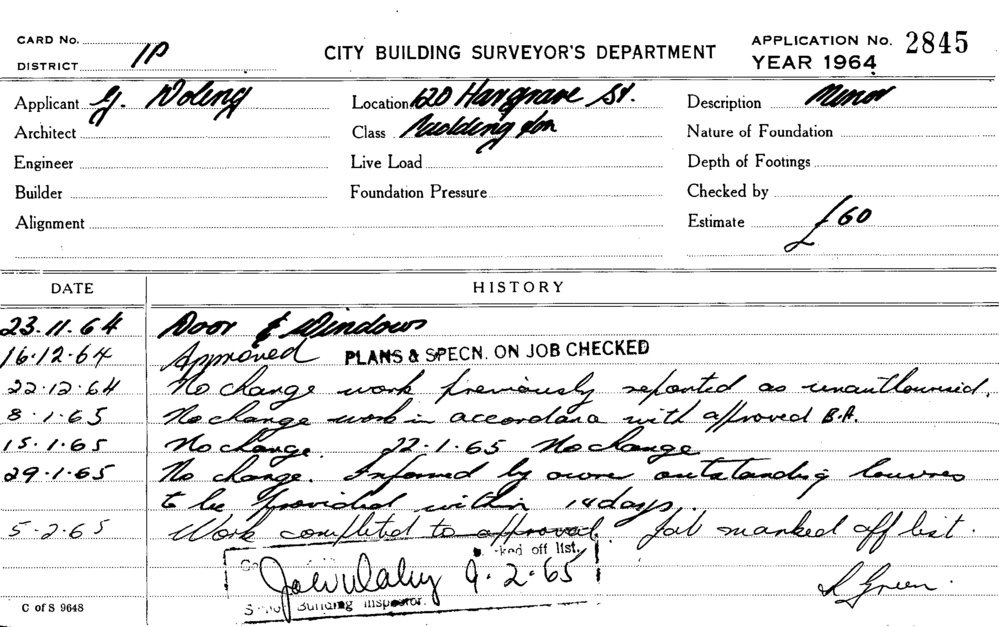 CARD No.
DISTRICT 1P
CITY BUILDING SURVEYOR'S DEPARTMENT
APPLICATION No. 2845
YEAR 1964
Applicant G. Location 120 Hargrave St. Description Minor
Architect Class Paddington Nature of Foundation
Engineer Live Load Depth of Footings
Builder Foundation Pressure Checked by
Alignment Estimate £60
DATE HISTORY
23.11.64 Door & Windows
16.12.64 Approved PLANS & SPECN. ON JOB CHECKED
22.12.64 No change work previously reported as
8.1.65 No change work in with approved B.A.
15.1.65 No change. 22.1.65 No change
29.1.65 No change. Informed by owner outstanding louvres
to be provided within 14 days.
5-2-65 Work completed to approval. Job marked off list.
ked off list.
9.2.65
Building Inspector.
S Green
C of S 9648